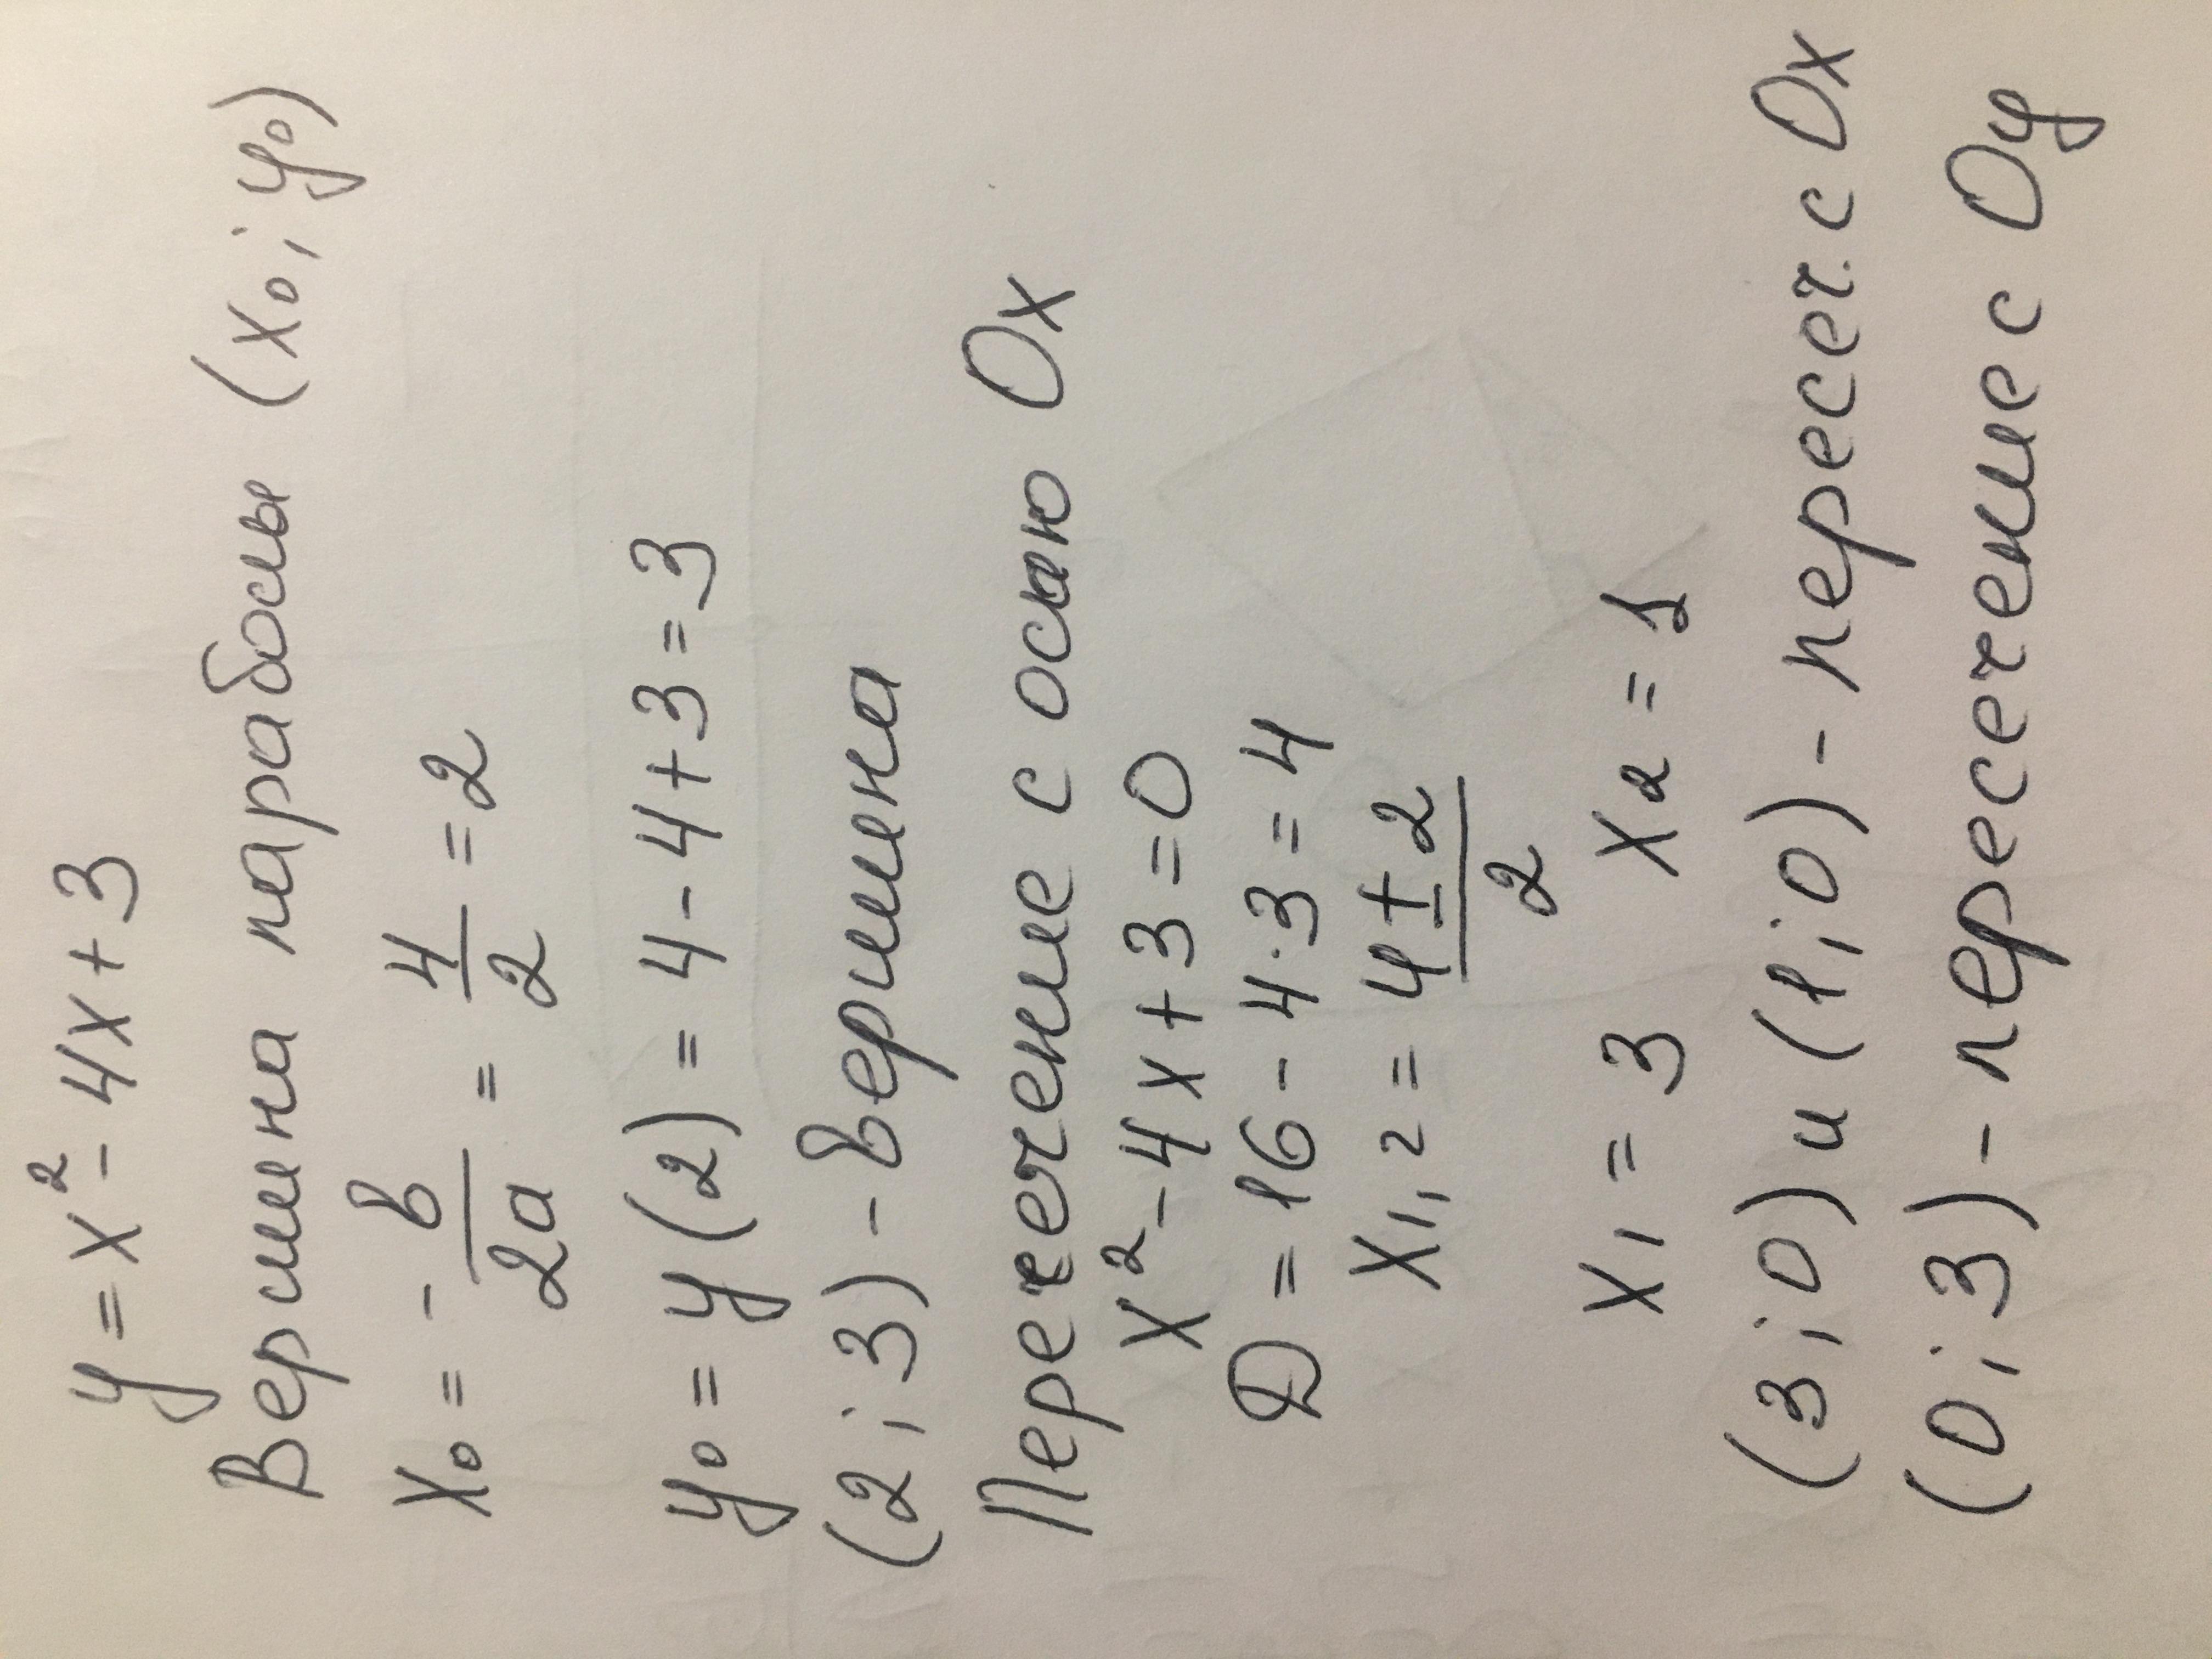 y = x² - 4x + 3
Вершина параболы (x₀; y₀)
x₀ = - в/2a = 4/2 = 2
y₀ = y(2) = 4 - 4 + 3 = 3
(2; 3) - вершина
Пересечение с осью Ox
x² - 4x + 3 = 0
D = 16 - 4·3 = 4
x₁,₂ = (4 ± 2)/2
x₁ = 3 x₂ = 1
(3; 0) и (1; 0) - пересеч. с Ox
(0; 3) - пересечение с Oy